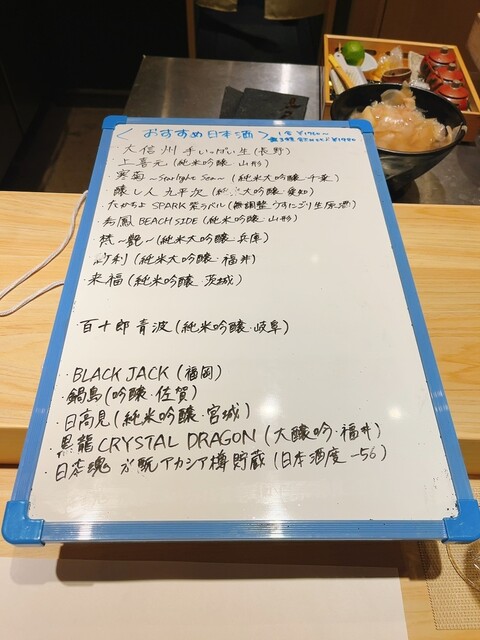 ＜おすすめ日本酒＞
・大信州 手いっぱい生(長野)
・上喜元(純米吟醸・山形)
～Starlight Sea～(純米大吟醸・千葉)
・醸し人九平次(大吟醸・愛知)
・たかちよ SPARK 紫ラベル(無調整うすにごり生原酒)
BEACH SIDE(純米吟醸・山形)
・梵～艶～(純米大吟醸・兵庫)
(純米大吟醸・福井)
・来福(純米吟醸・茨城)
・百十郎 青波(純米吟醸・岐阜)
・BLACK JACK(福岡)
・鍋島(吟醸・佐賀)
・日高見(純米吟醸・宮城)
・黒龍 CRYSTAL DRAGON(大醸吟・福井)
アカシア樽貯蔵(日本酒度-56)